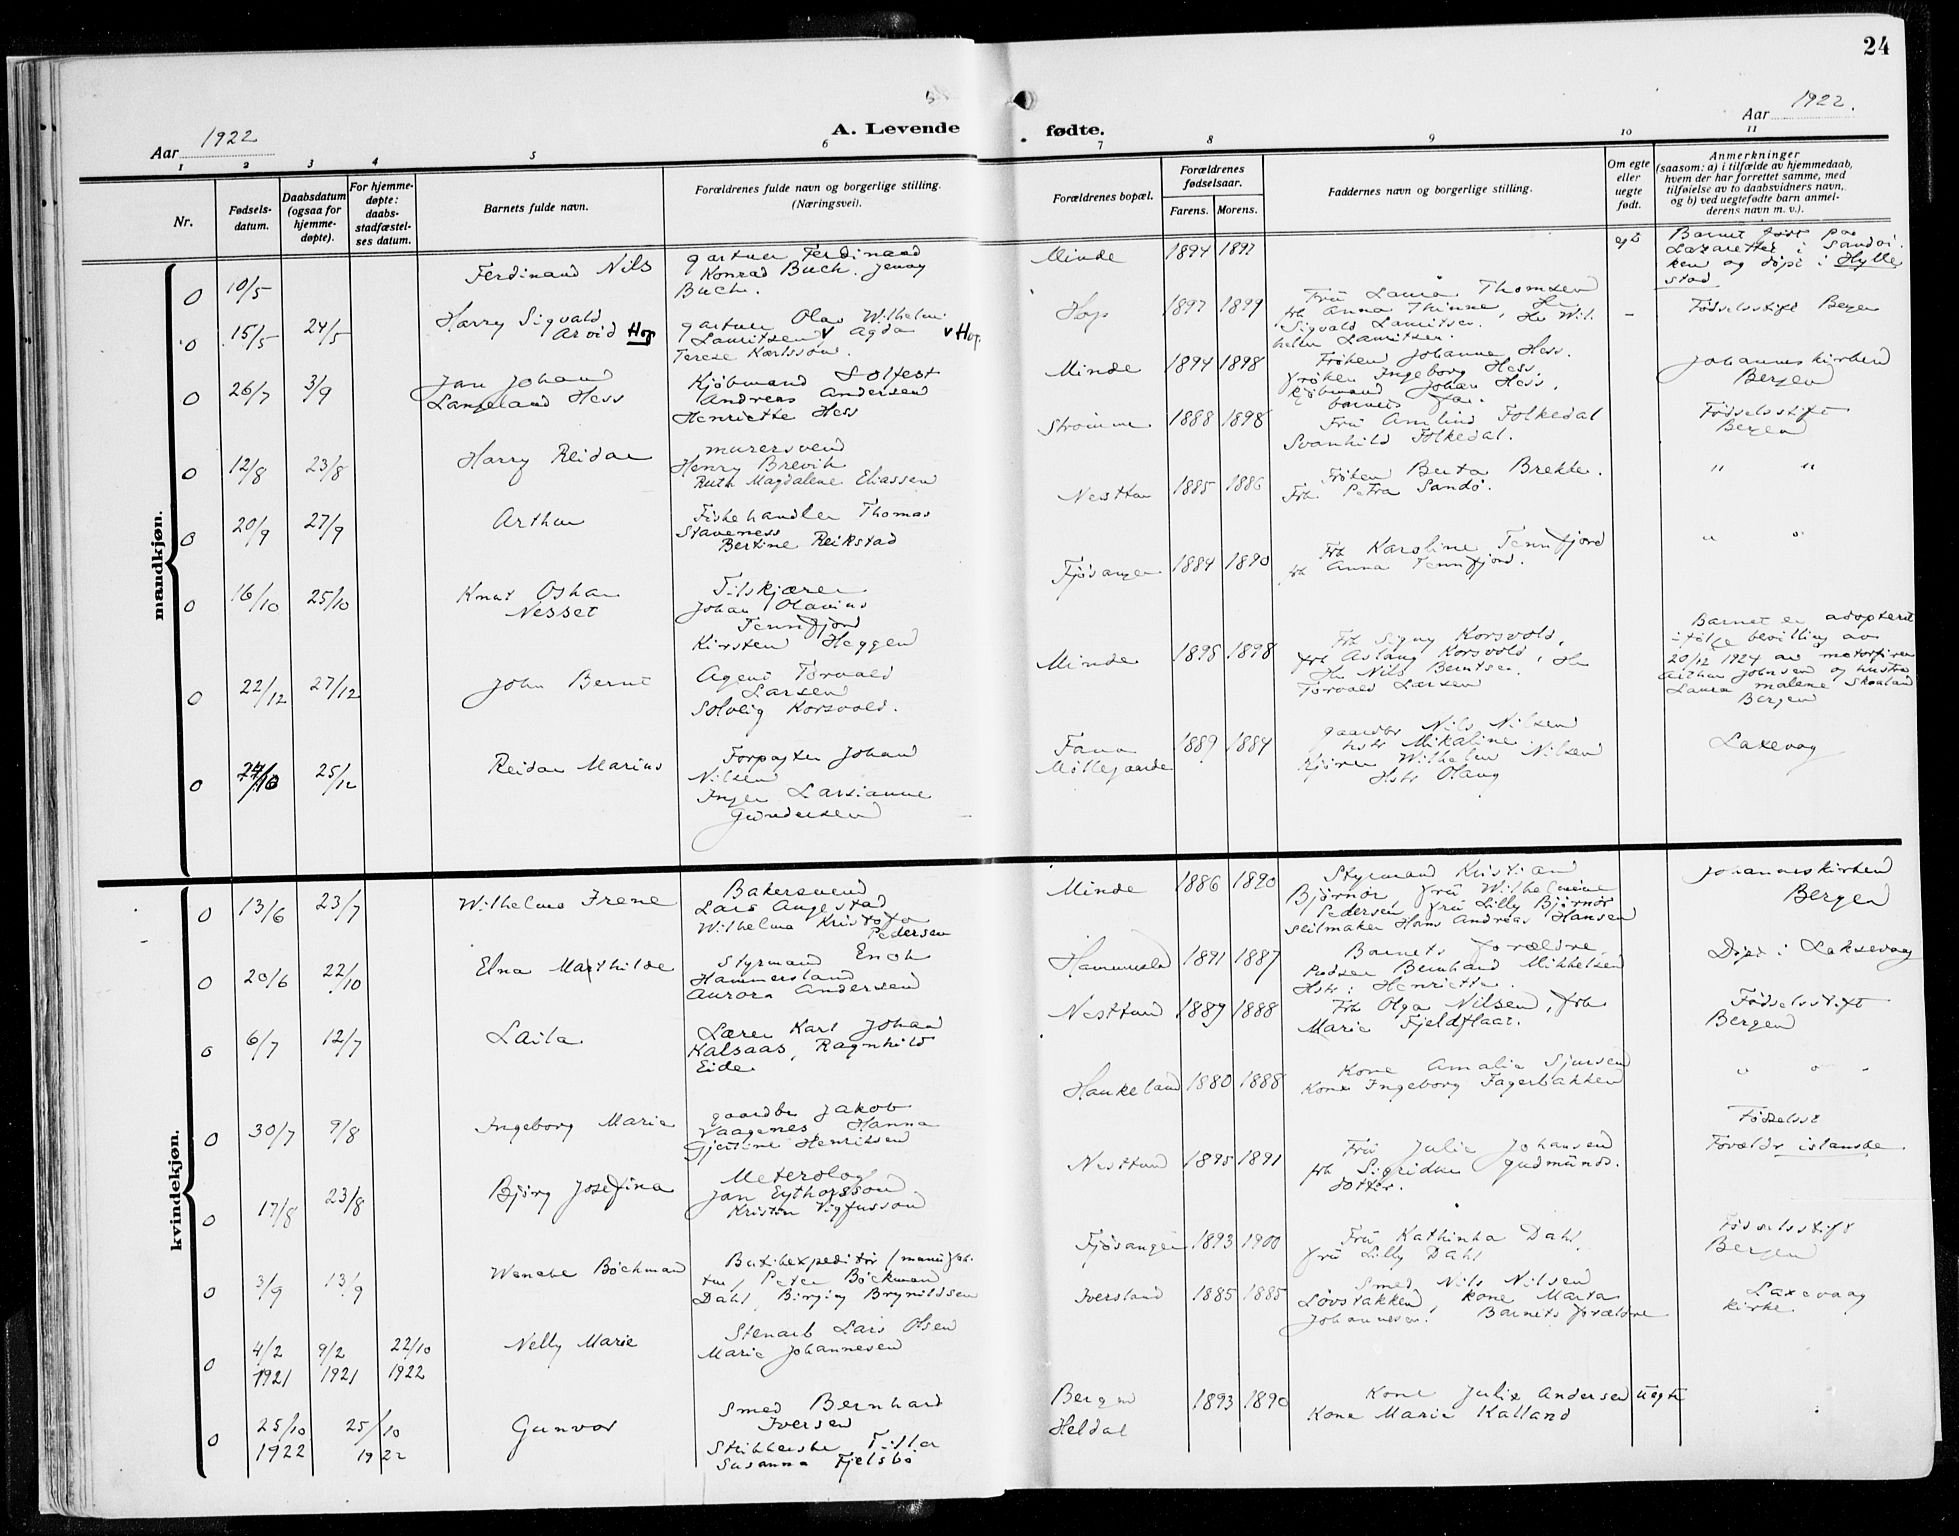 24
Aar 1922
A. Levende fødte.
Aar 1922.
1 2 3 4 5 6 7 8 9 10 11
Nr.
Fødsels-
datum.
Daabsdatum
(ogsaa for
hjemme-
døpte).
For hjemme-
døpte:
daabs-
stadfæstel-
ses datum.
Barnets fulde navn.
Forældrenes fulde navn og borgerlige stilling.
(Næringsvei).
Forældrenes bopæl.
Forældrenes
fødselsaar.
Farens. Morens.
Faddernes navn og borgerlige stilling.
Om egte
eller
uegte
født.
Anmerkninger
(saasom: a) i tilfælde av hjemmedaab,
hvem der har forrettet samme, med
tilføielse av to daabsvidners navn,
og b) ved uegtefødte barn anmel-
derens navn m. v.).
mandkjøn.
0 10/5
Ferdinand Nils
gartner Ferdinand
Konrad Buch. Jenny
Buch.
Minde 1894 1897
Barnet født paa
Lazarettet i Sandvi-
ken og døpt i Hylle
stad
0 15/5 24/5
Harry Sigvald
Arvid Hop
gartner Olav Wilhelm
Lauritsen v Agda v Hop.
Terese Karlsson.
Hop 1897 1899
Frü Laura Thomsen
frk Anna Thinne, Hr
Sigvald Lauritsen. Hr Wil-
helm Lauritsen.
–
Fødselsstift Bergen
0 26/7 3/9
Jan Johand
Langeland Hess
Kjøbmand Solfest
Andreas Andersen
Henriette Hess
Minde 1894 1898
Frøken Johanne Hess.
frøken Ingeborg Hess.
kjøbmand Johan Hess.
barnets far.
Johanneskirken
Bergen
0 12/8 23/8
Harry Reidar
murersvend
Henry Brevik
Ruth Magdalene Eliassen
Strømme 1888 1898
Frü Amlind Folkedal
Svanhild Folkedal.
Fødselsstift
Bergen
0 20/9 27/9
Arthur
Fiskehandler Thomas
Staveness
Bertine Reikstad
Nesttun 1885 1886
Frøken Berta Brekke.
Frk. Petra Sandø.
" "
0 16/10 25/10
Knut Oskar
Nesset
Tilskjærer
Johan Olavius
Tennfjord
Kirsten Heggen
Fjøsanger 1884 1890
Frk Karoline Tennfjord
frk Anna Tennfjord.
" "
0 22/12 27/12
John Bernt
Agent Torvald
Larsen
Solveig Korsvold.
Minde 1898 1898
Frk Signy Korsvold,
frk Aslaug Korsvold, Hr
Hr Nils Berntsen.
Torvald Larsen
Barnet er adopteret
ifølge bevilling av
20/12 1924 av motorfører
Arthur Johnsen og hustru
Laura Malene Skauland
Bergen
0 25/12
Reidar Marius
Forpagter Johand
Nilsen
Inger Larsianne
Gündersen
Fana
Møllegaarde 1889 1884
gaardbr Nils Nilsen
hstr Mikaline
kjører Wilhelm Nilsen
Hstr Olaug
Laxevaag
kvindekjøn.
0 13/6 23/7
Wilhelma Irene
Bakersvend
Lars Augestad
Wilhelma Kristofa
Pedersen
Minde 1886 1890
Styrmand Kristian
Bjørnør frü Wilhelmine
Pedersen, frü Lilly Bjørnør
seilmaker Hans Andreas Hansen
Johanneskirken
Bergen
0 20/6 22/10
Elna Mathilde
Styrmand Enok
Hammersland
Aurora Andersen
Hammersld 1891 1887
Barnets forældre
Pudser Bernhard Mikkelsen
Hstr: Henriette.
Døpt i Laksevaag
0 6/7 12/7
Laila
Lærer Karl Johan
Kalsaas, Ragnhild
Eide
Nesttun 1887 1888
Frk Olga Nilsen, frk
Marie Fjeldflaar.
Fødselsstift
Bergen
0 30/7 9/8
Ingeborg Marie
gaardbr Jakob
Vaagenes Hanna
Gjertine Henriksen
Haukeland 1880 1888
Kone Amalie Sjursen
Kone Ingeborg Fagerbakken
" " "
0 17/8 23/8
Bjørg Josefina
Meterolog
Jan Eythorsson
Kristin Vigfusson
Nesttun 1895 1891
Frü Julie Johansen
frk Sigridur gudmünds-
dotter.
Fødselsst
Forældr islanske
0 3/9 13/9
Wenche Böckman
Butikexpeditør (manufak-
tur) Peter Böckmann
Dahl, Birgity Brynildsen
Fjøsanger 1893 1900
Frü Kathinka Dahl
frü Lilly Dahl
Fødselsstift
Bergen
0 4/2 9/2 22/10
1921 1921 1922
Nelly Marie
Stenarb Lars Olsen
Marie Johannesen
Iversland 1885 1885
Smed Nils Nilsen
Løvstakken, kone Marta
Johannesen. Barnets forældre
Laxevaag
kirke
0 25/10 25/10
1922 1922
Gunvor
Smed Bernhard
Iversen
Strikkerske Tilla
Susanna Fjelsbø
Bergen
Heldal 1893 1890
Kone Julie Andersen uegte
Kone Marie Kalland